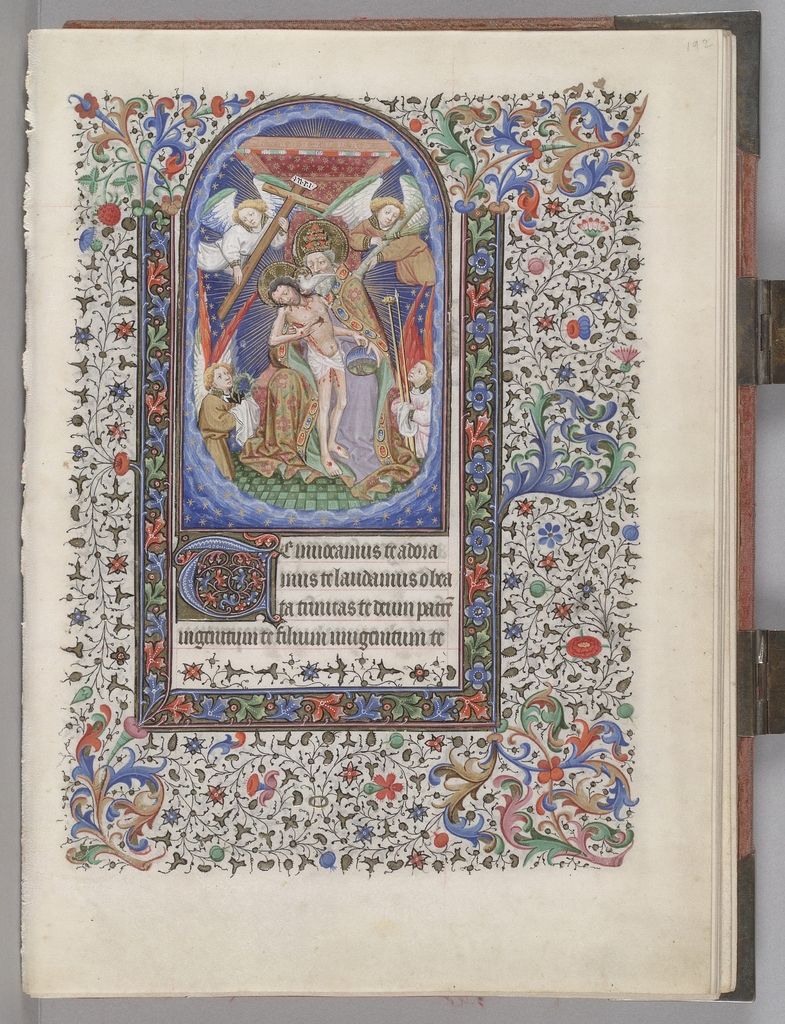 192
INRI
Te inuocamus te adora
mus te laudamus o bea
ta trinitas te deum patrē
ingenitum te filium unigenitum te